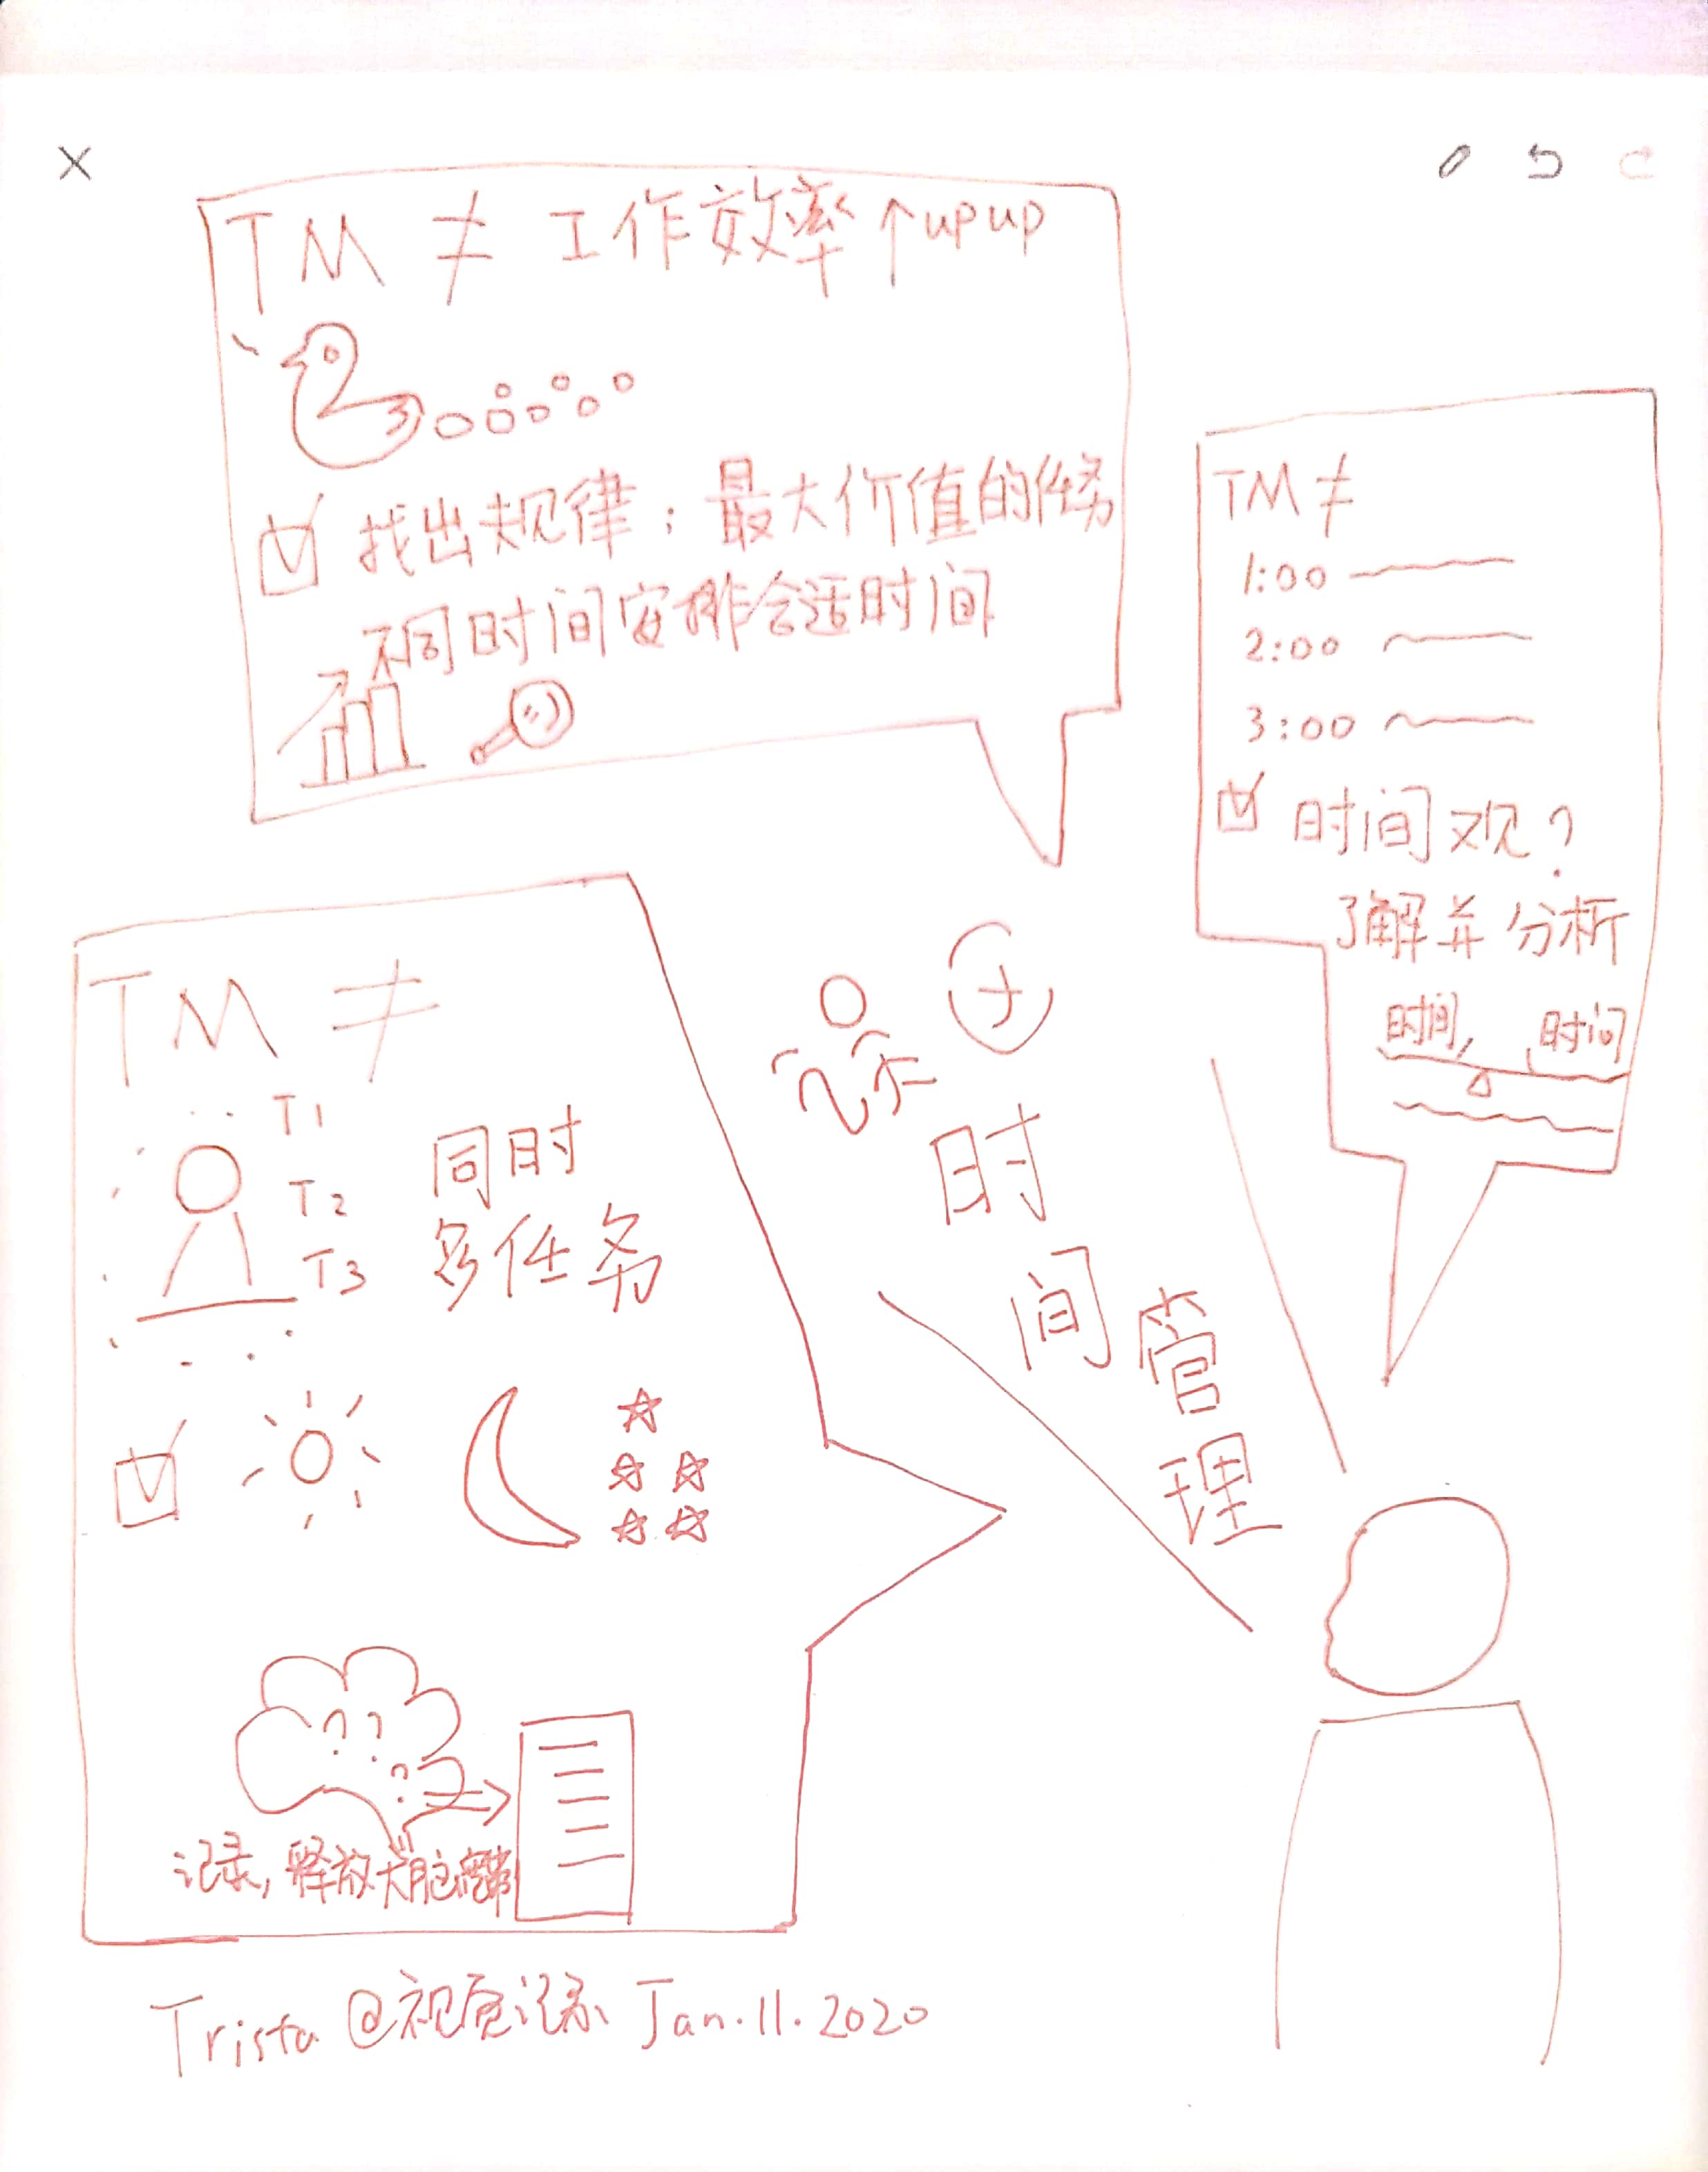 TM ≠ 工作效率 ↑upup
找出规律；最大价值的任务
不同时间安排合适时间
TM ≠
1:00
2:00
3:00
时间观？
了解并分析
时间, 时间
TM ≠
T1
T2
T3
同时
多任务
? ?
?
记录, 释放大脑
时间管理
Trista @视觉记录 Jan.11.2020